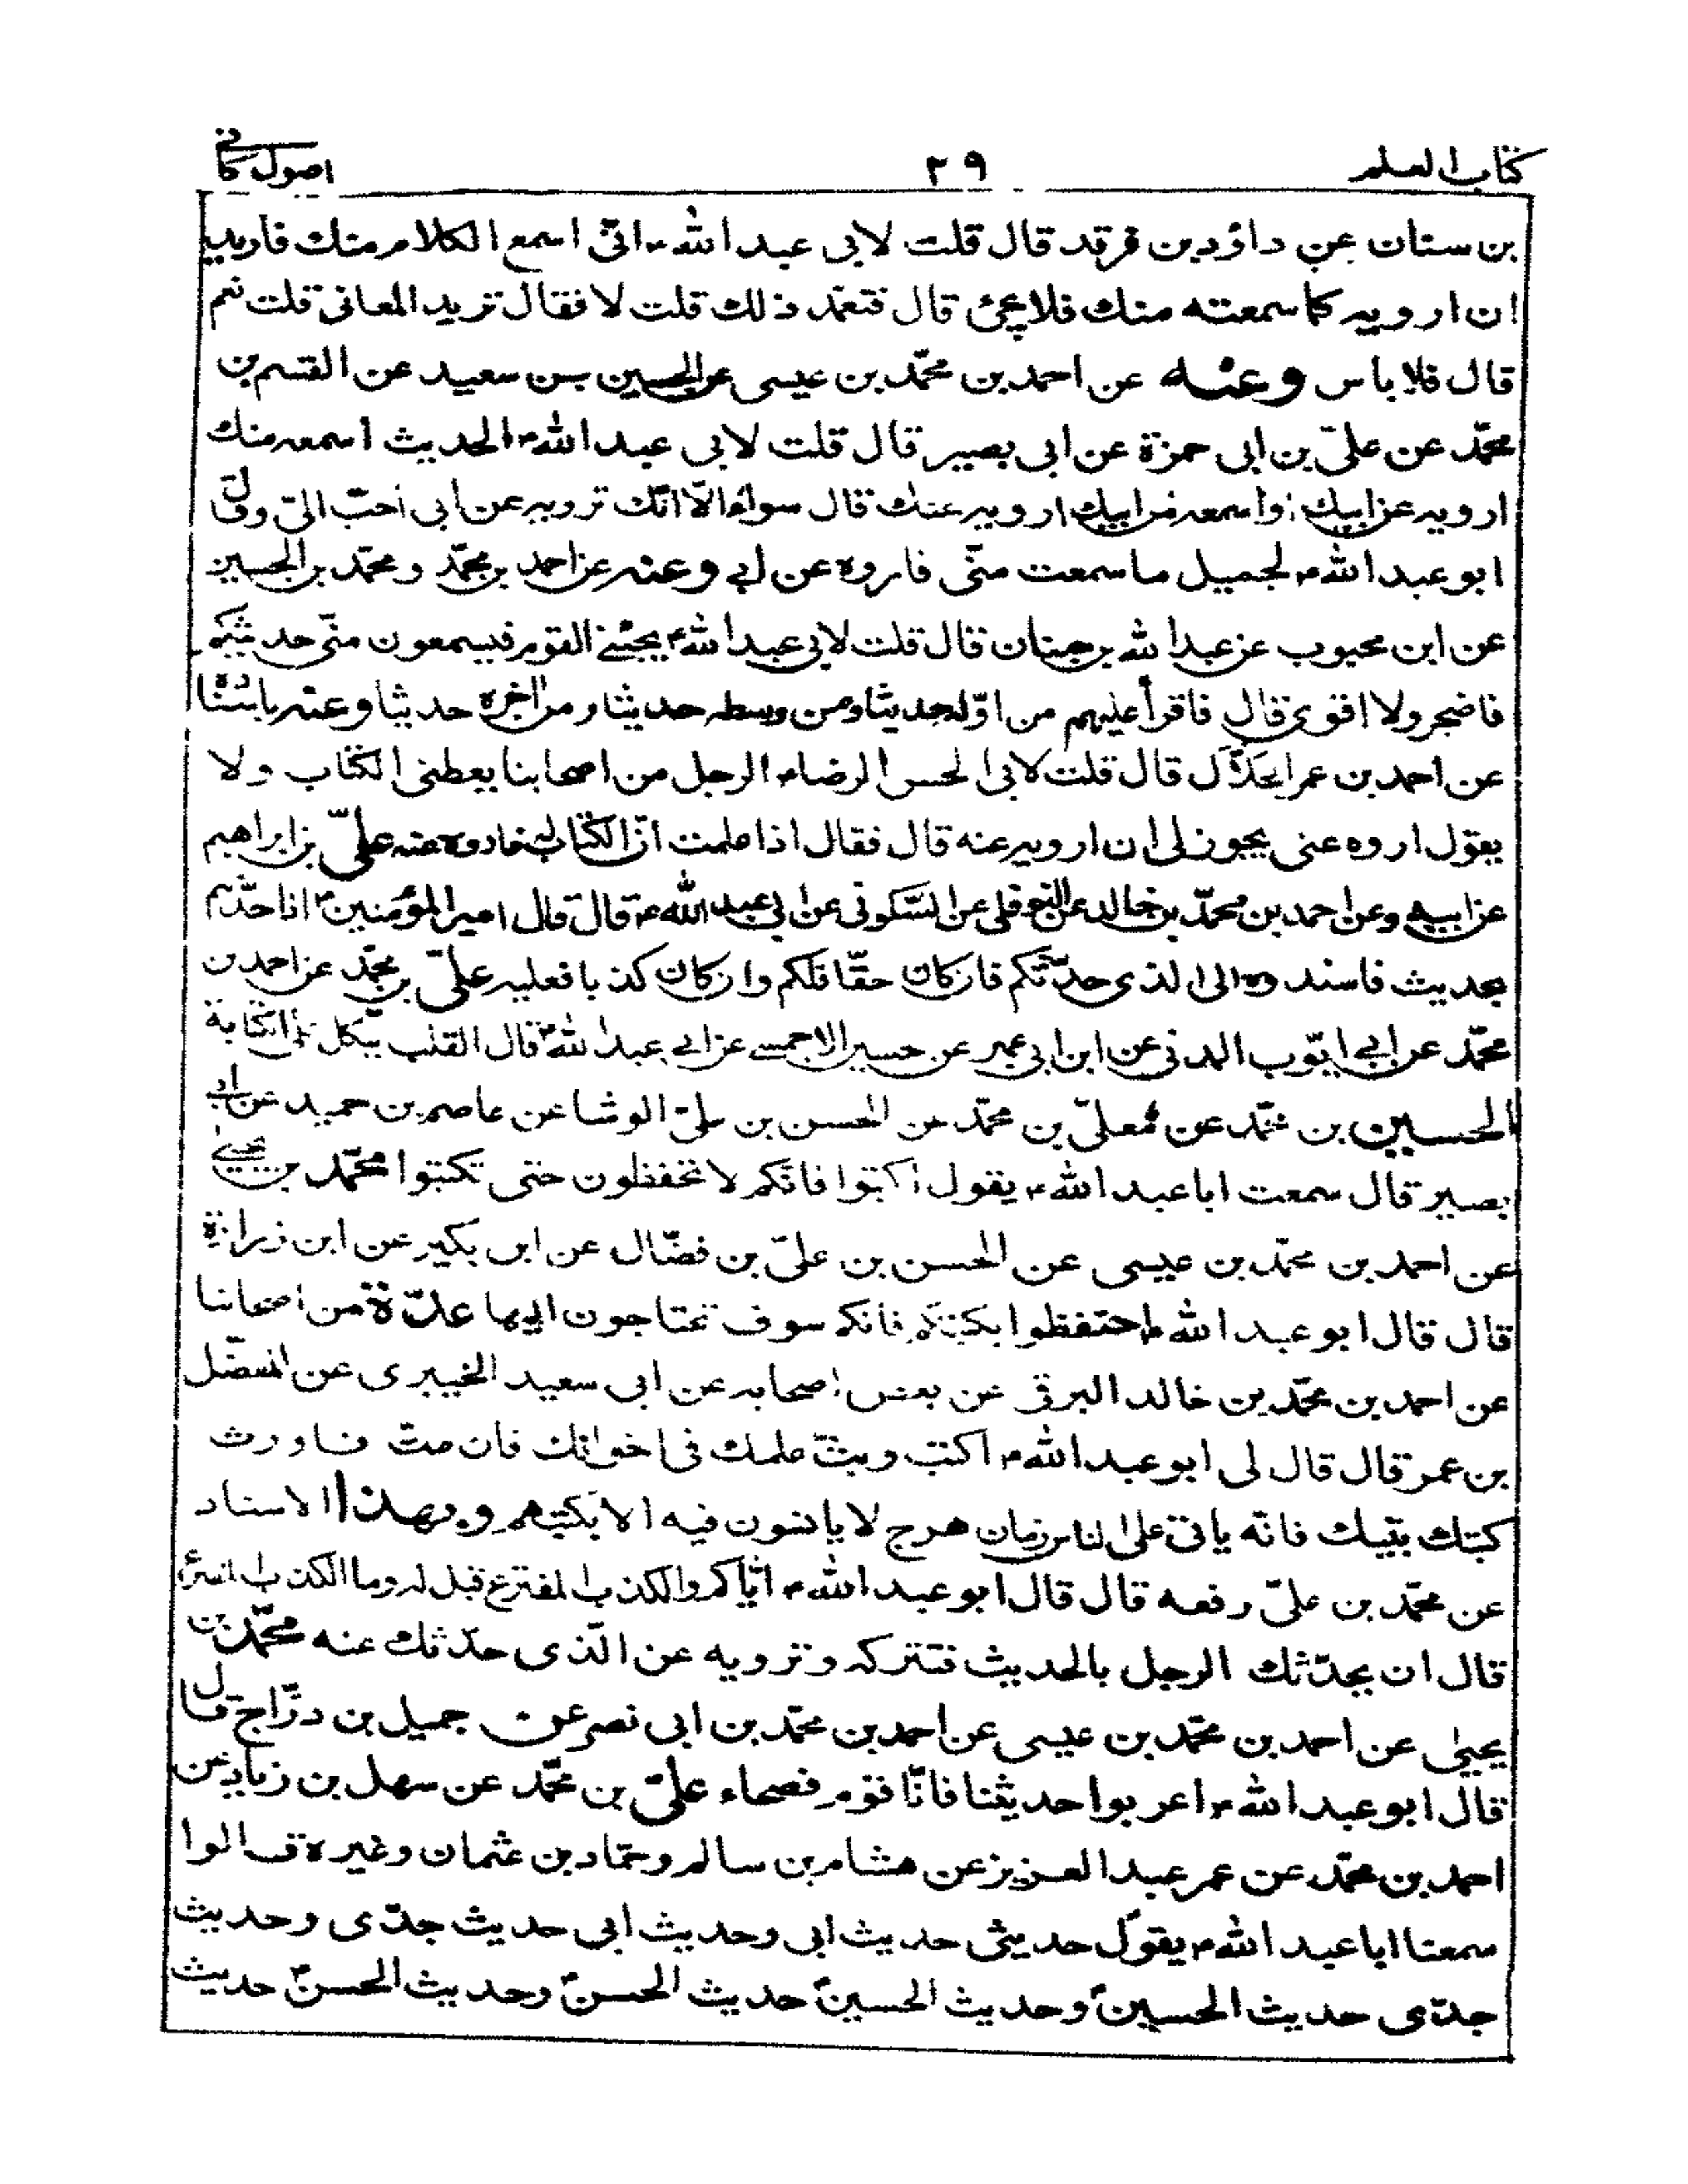 كتاب العلم ٢٩ اصول كافي
بن سنان عن داؤد بن فرقد قال قلت لابي عبد الله ء اني اسمع الكلام منك فاريد
ان ارويه كما سمعته منك فلا يجئ قال فتعمّد ذلك قلت لا فقال تريد المعاني قلت نعم
قال فلا باس وعنه عن احمد بن محمّد بن عيسى عن الحسين بن سعيد عن القسم بن
محمّد عن عليّ بن ابي حمزة عن ابي بصير قال قلت لابي عبد الله ء الحديث اسمعه منك
ارويه عن ابيك او اسمعه من ابيك ارويه عنك قال سواء الّا انّك ترويه عن ابي احبّ اليّ وقال
ابو عبد الله ء لجميل ما سمعت منّي فاروه عن ابي وعنه عن احمد بن محمّد ومحمّد بن الحسين
عن ابن محبوب عن عبد الله بن سنان قال قلت لابي عبد الله ء يجئني القوم فيسمعون منّي حديثكم
فاضجر ولا اقوى قال فاقرأ عليهم من اوّله حديثا ومن وسطه حديثا ومن اخره حديثا وعنه باسناده
عن احمد بن عمر الحلّال قال قلت لابي الحسن الرضا ء الرجل من اصحابنا يعطني الكتاب ولا
يقول اروه عني يجوز لي ان ارويه عنه قال فقال اذا علمت انّ الكتاب له فاروه عنه عليّ بن ابراهيم
عن ابيه وعن احمد بن محمّد بن خالد عن النوفلي عن السّكوني عن ابي عبد الله ء قال قال امير المؤمنين ء اذا حدّثتم
بحديث فاسندوه الى الذي حدّثكم فان كان حقّا فلكم وان كان كذبا فعليه عليّ بن محمّد عن احمد بن
محمّد عن ابي ايّوب المدني عن ابن ابي عمير عن حسين الاحمسي عن ابي عبد الله ء قال القلب يتّكل على الكتابة
الحسين بن محمّد عن معلّى بن محمّد عن الحسن بن عليّ الوشا عن عاصم بن حميد عن ابي
بصير قال سمعت ابا عبد الله ء يقول اكتبوا فانّكم لا تحفظون حتى تكتبوا محمّد بن يحيى
عن احمد بن محمّد بن عيسى عن الحسن بن عليّ بن فضّال عن ابن بكير عن ابن زرارة
قال قال ابو عبد الله ء احتفظوا بكتبكم فانكم سوف تحتاجون اليها عدّة من اصحابنا
عن احمد بن محمّد بن خالد البرقي عن بعض اصحابه عن ابي سعيد الخيبري عن المفضّل
بن عمر قال قال لي ابو عبد الله ء اكتب وبثّ علمك في اخوانك فان متّ فاورث
كتبك بنيك فانّه ياتي على الناس زمان هرج لا يانسون فيه الا بكتبهم وبهذا الاسناد
عن محمّد بن عليّ رفعه قال قال ابو عبد الله ء ايّاكم والكذب المفترع قيل له وما الكذب المفترع
قال ان يحدّثك الرجل بالحديث فتتركه وترويه عن الّذي حدّثك عنه محمّد بن
يحيى عن احمد بن محمّد بن عيسى عن احمد بن محمّد بن ابي نصر عن جميل بن درّاج قال
قال ابو عبد الله ء اعربوا حديثنا فانّا قوم فصحاء عليّ بن محمّد عن سهل بن زياد عن
احمد بن محمّد عن عمر عبد العزيز عن هشام بن سالم وحمّاد بن عثمان وغيره قالوا
سمعنا ابا عبد الله ء يقول حديثي حديث ابي وحديث ابي حديث جدّي وحديث
جدّي حديث الحسين ء وحديث الحسين ء حديث الحسن ء وحديث الحسن ء حديث